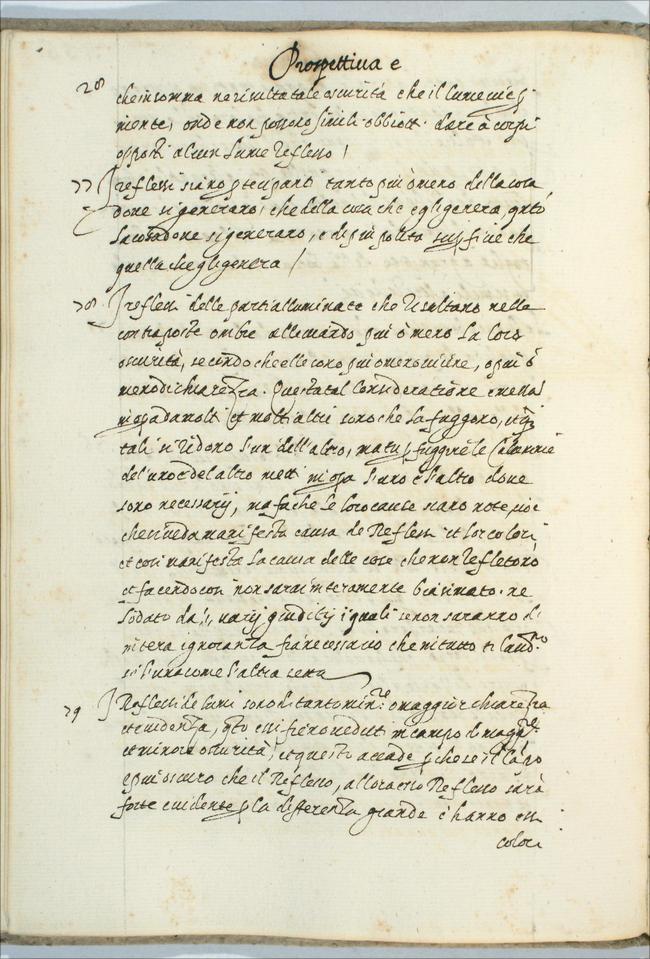 Prospettiua e
28
che in somma ne risulta tale oscurità che il lume
mente, onde non possono simili obbiett. dare à corpi
opposti alcun lume reflesso /
77 I reflessi siano tanto più ò meno della cosa
doue si generaro, che della cosa che egli genera, qnto
la cosa doue si generaro, è di più polita suple che
quella che gli genera /
78. I reflessi delle parti alluminate che risaltano nelle
contraposte ombre alleuiando più ò meno la loro
oscurità, secondo che elle sono più ò meno uicine, ò più ò
meno di chiarezza. Questa tal consideratione è messa
in opa da molti et molti altri sono che la fuggono, et qsti
tali si ridono l'un dell'altro, ma tu p fuggire le calonnie
del' uno et del altro metti in opa l'uno e l'altro doue
sono necessarij, ma fa che le loro cause siano note, cioè
che si ueda manifesta causa de Reflessi et lor colori
et così manifesta la causa delle cose che non refletono
et facendo così non sarai interamente biasimato. ne
lodato da varij giuditij i quali se non saranno d'
intera ignoranza fia necessario che in tutto ti laud.no
sì l'una come l'altra setta
79 I Reflessi de lumi sono di tanto min.e ò maggiur chiarezza
et euidenza, qto essi fieno ueduti in campo di magg.e
et minore oscurità, et questo accade p che se il canpo
è più oscuro che il reflesso, allora esso Reflesso sarà
forte euidente p la differenza grande c'hanno essi
colori